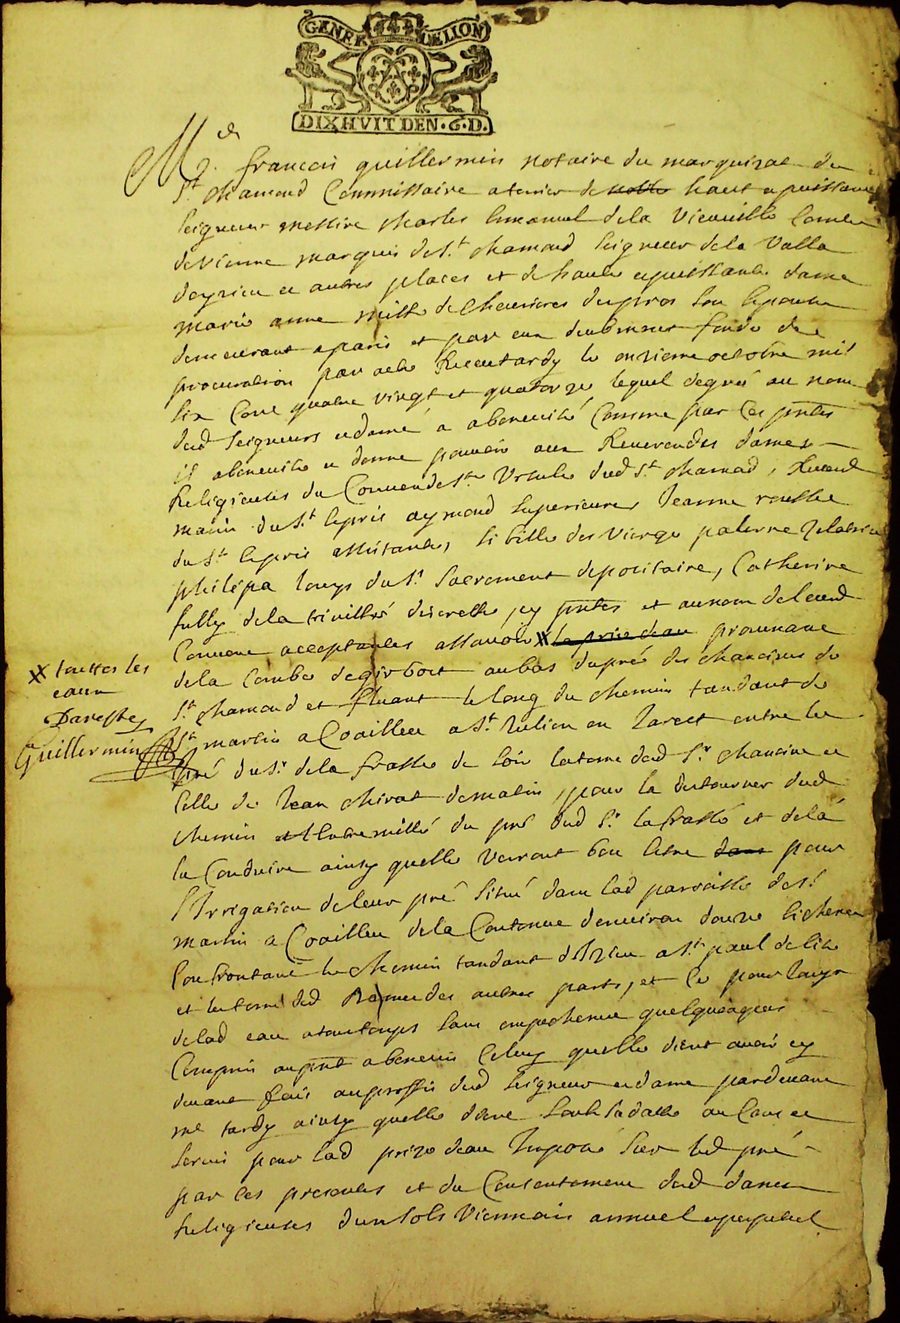 GENER DE LION
DIXHVIT DEN. 6. D.
Me francois guillermin notaire du marquizat de
St chamond Commissaire a terrier de noble haut et puissant
seigneur messire charles Emanuel de la Vieuville Comte
de vienne marquis de St chamond seigneur de la Valla
et autres places et de haute et puissante dame
marie anne mitte de chevrieres son Espouse
demeurant a paris et par eux fondé de
procuration par acte Receu tardy le onzieme octobre mil
six Cent quatre vingt et quatorze lequel de gré au nom
desd seigneurs et dame a abenevisé Comme par Ces pntes
il abenevise et donne pouvoir aux Reverendes dames
Religieuses du Couvent de Ste Ursule dud St chamond,
marie du St Esprit aymond superieure Jeanne
du St Esprit assistante, sibille des Vierge palerne Zelatrice
philipa louys du St Sacrement depositaire, Catherine
fully de la trinitté discrette, cy pntes et au nom de leurd
Couvent acceptantes assavoir # la prise deau provenant
de la Combe de au bas du pré des chanoines de
St chamond et fluant le long du chemin tandant de
St martin a Coailleu a St Julien en Jarest entre le
pré du Sr de la frasse de soir la terre dud Sr chanoine et
Celle de Jean chirat de matin, pour la destourner dud
chemin du pré dud Sr la frasse et de la
la Conduire ainsy quelle verront bon estre dans pour
l'Irrigation de leur pré situé dans lad parroisse de St
martin a Coailleu de la Contenue denviron douze bicherees
Confrontant le chemin tandant d'Izieu a St paul
et la terre des autres parts, et Ce pour Jouyr
de lad eau a tout temps sans empechement quelquonques
Compris au pnt abenevis Celuy quelle dient avoir cy
devant fait au proffit dud seigneur et dame pardevant
me tardy ainsy quelle dient au Cens et
servis pour lad prize deau Imposé sur led pré
par Ces presentes et du Consentement desd dames
Religieuses dun sols Viennois annuel et perpetuel
# touttes les
eaux
Guillermin